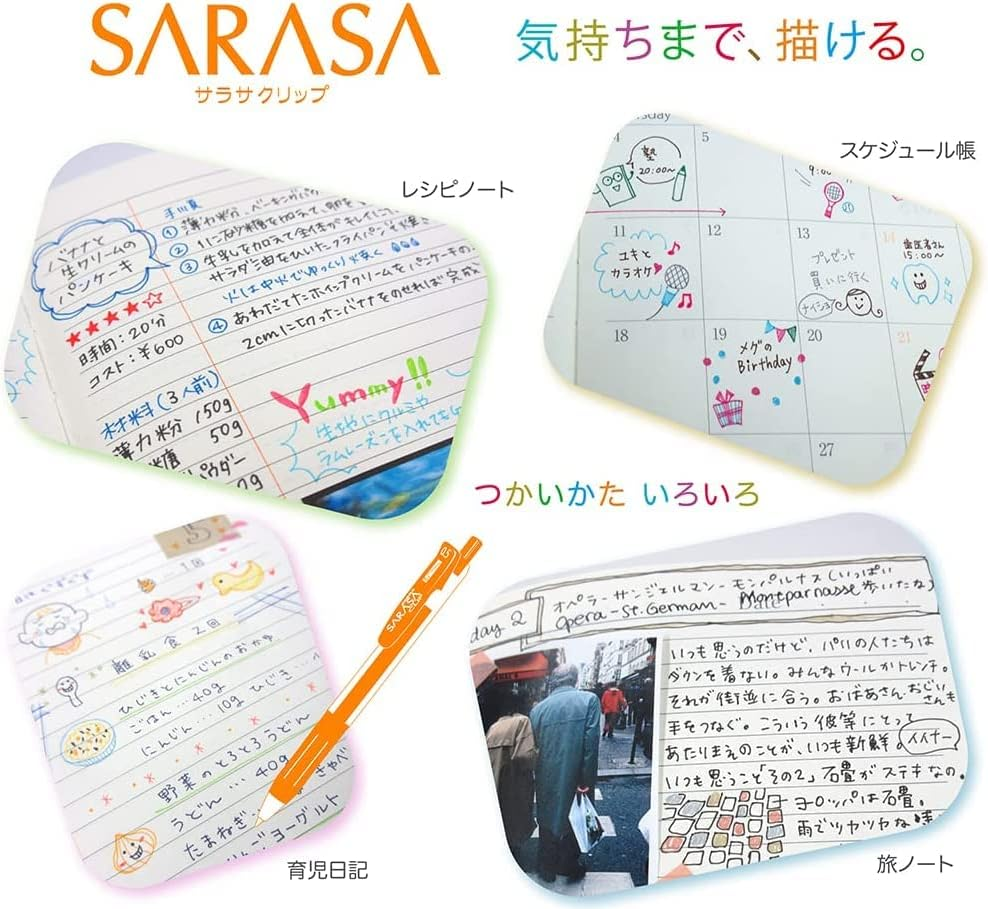 SARASA
サラサクリップ
気持ちまで、描ける。
レシピノート
バナナと
生クリームの
パンケーキ
★★★★☆
時間:20分
コスト:¥600
材料(3人前)
薄力粉 150g
50g
パウダー
手順
① 薄力粉、ベーキングパウ
② 1に砂糖を加えて
③ 牛乳を加えて全体が
サラダ油をひいたフライパンで
火は中火でゆっくり焼く
④ あわだてたホイップクリームをパンケーキの
2cmに切ったバナナをのせれば完成
Yummy!!
生地にクルミや
ラムレーズンを入れても
スケジュール帳
塾
20:00~
5
9:00
11
ユキと
カラオケ
12
13
プレゼント
買いに行く
ナイショ
14
歯医者さん
15:00~
18
19
メグの
Birthday
20
21
27
つかいかた いろいろ
育児日記
15
1回
離乳食 2回
ひじきとにんじんのおかゆ
ごはん…40g ひじき
にんじん…10g
野菜のとろとろうどん
うどん…40g
たまねぎ
ヨーグルト
SARASA
旅ノート
day 2
オペラーサンジェルマンーモンパルナス(いっぱい
歩いたな)
opera-St.German- Montparnasse
いつも思うのだけど、パリの人たちは
ダウンを着ない。みんなウールかトレンチ。
それが街並に合う。おばあさんおじいさんも
手をつなぐ。こういう彼等にとって
あたりまえのことが、いつも新鮮。イイナー
いつも思うこと「その2」石畳がステキなの。
ヨーロッパは石畳。
雨でツヤツヤな